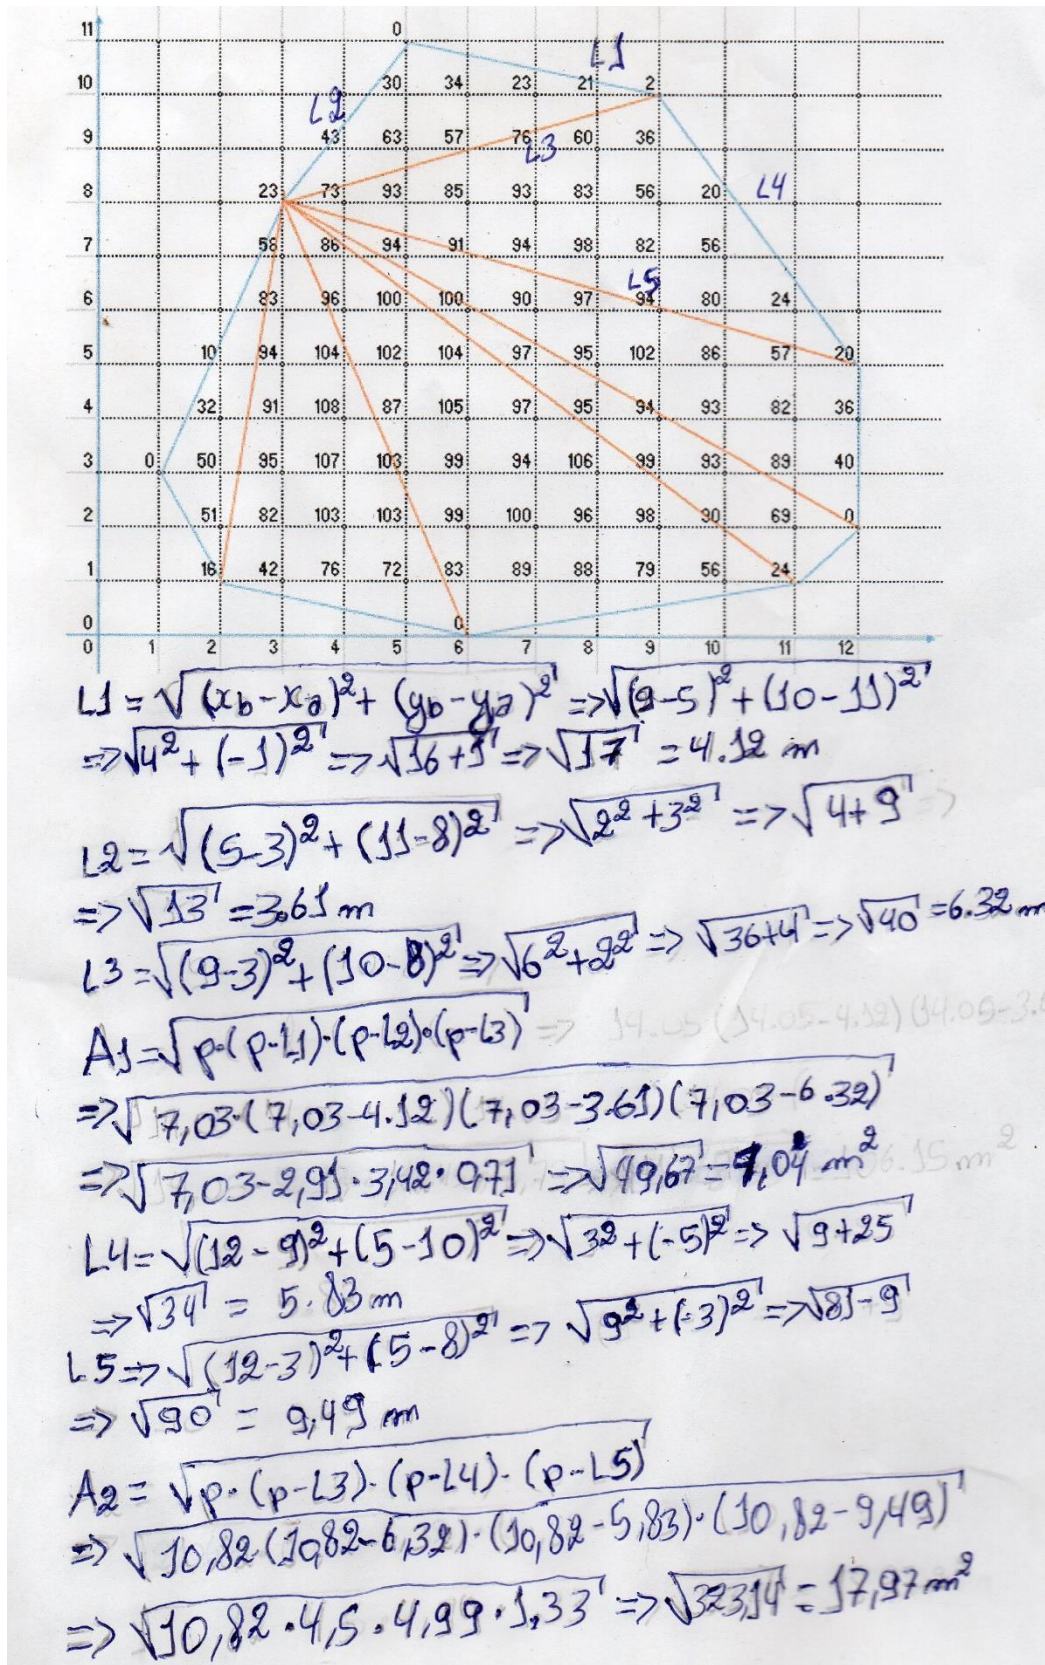 0
11
L1
10 30 34 23 21 2
L2
9 43 63 57 76 60 36
L3
8 23 73 93 85 93 83 56 20 L4
7 58 86 94 91 94 98 82 56
L5
6 83 96 100 100 90 97 94 80 24
5 10 94 104 102 104 97 95 102 86 57 20
4 32 91 108 87 105 97 95 94 93 82 36
3 0 50 95 107 103 99 94 106 99 93 89 40
2 51 82 103 103 99 100 96 98 90 69 0
1 16 42 76 72 83 89 88 79 56 24
0 0
0 1 2 3 4 5 6 7 8 9 10 11 12
L1 = √(xb-xa)² + (yb-ya)² => √(9-5)² + (10-11)²
=> √4² + (-1)² => √16+1 => √17 = 4.12 m
L2 = √(5-3)² + (11-8)² => √2² + 3² => √4+9 =>
=> √13 = 3.61 m
L3 = √(9-3)² + (10-8)² => √6² + 2² => √36+4 => √40 = 6.32 m
A1 = √p·(p-L1)·(p-L2)·(p-L3) => 14.05 (14.05-4.12) (14.05-3.6
=> √7,03·(7,03-4.12)(7,03-3.61)(7,03-6.32)
=> √7,03-2,91·3,42·0,71 => √49,67 = 7,04 m²
L4 = √(12-9)² + (5-10)² => √3² + (-5)² => √9+25
=> √34 = 5.83 m
L5 => √(12-3)² + (5-8)² => √9² + (-3)² => √81-9
=> √90 = 9,49 m
A2 = √p·(p-L3)·(p-L4)·(p-L5)
=> √10,82·(10,82-6,32)·(10,82-5,83)·(10,82-9,49)
=> √10,82·4,5·4,99·1,33 => √323,14 = 17,97 m²